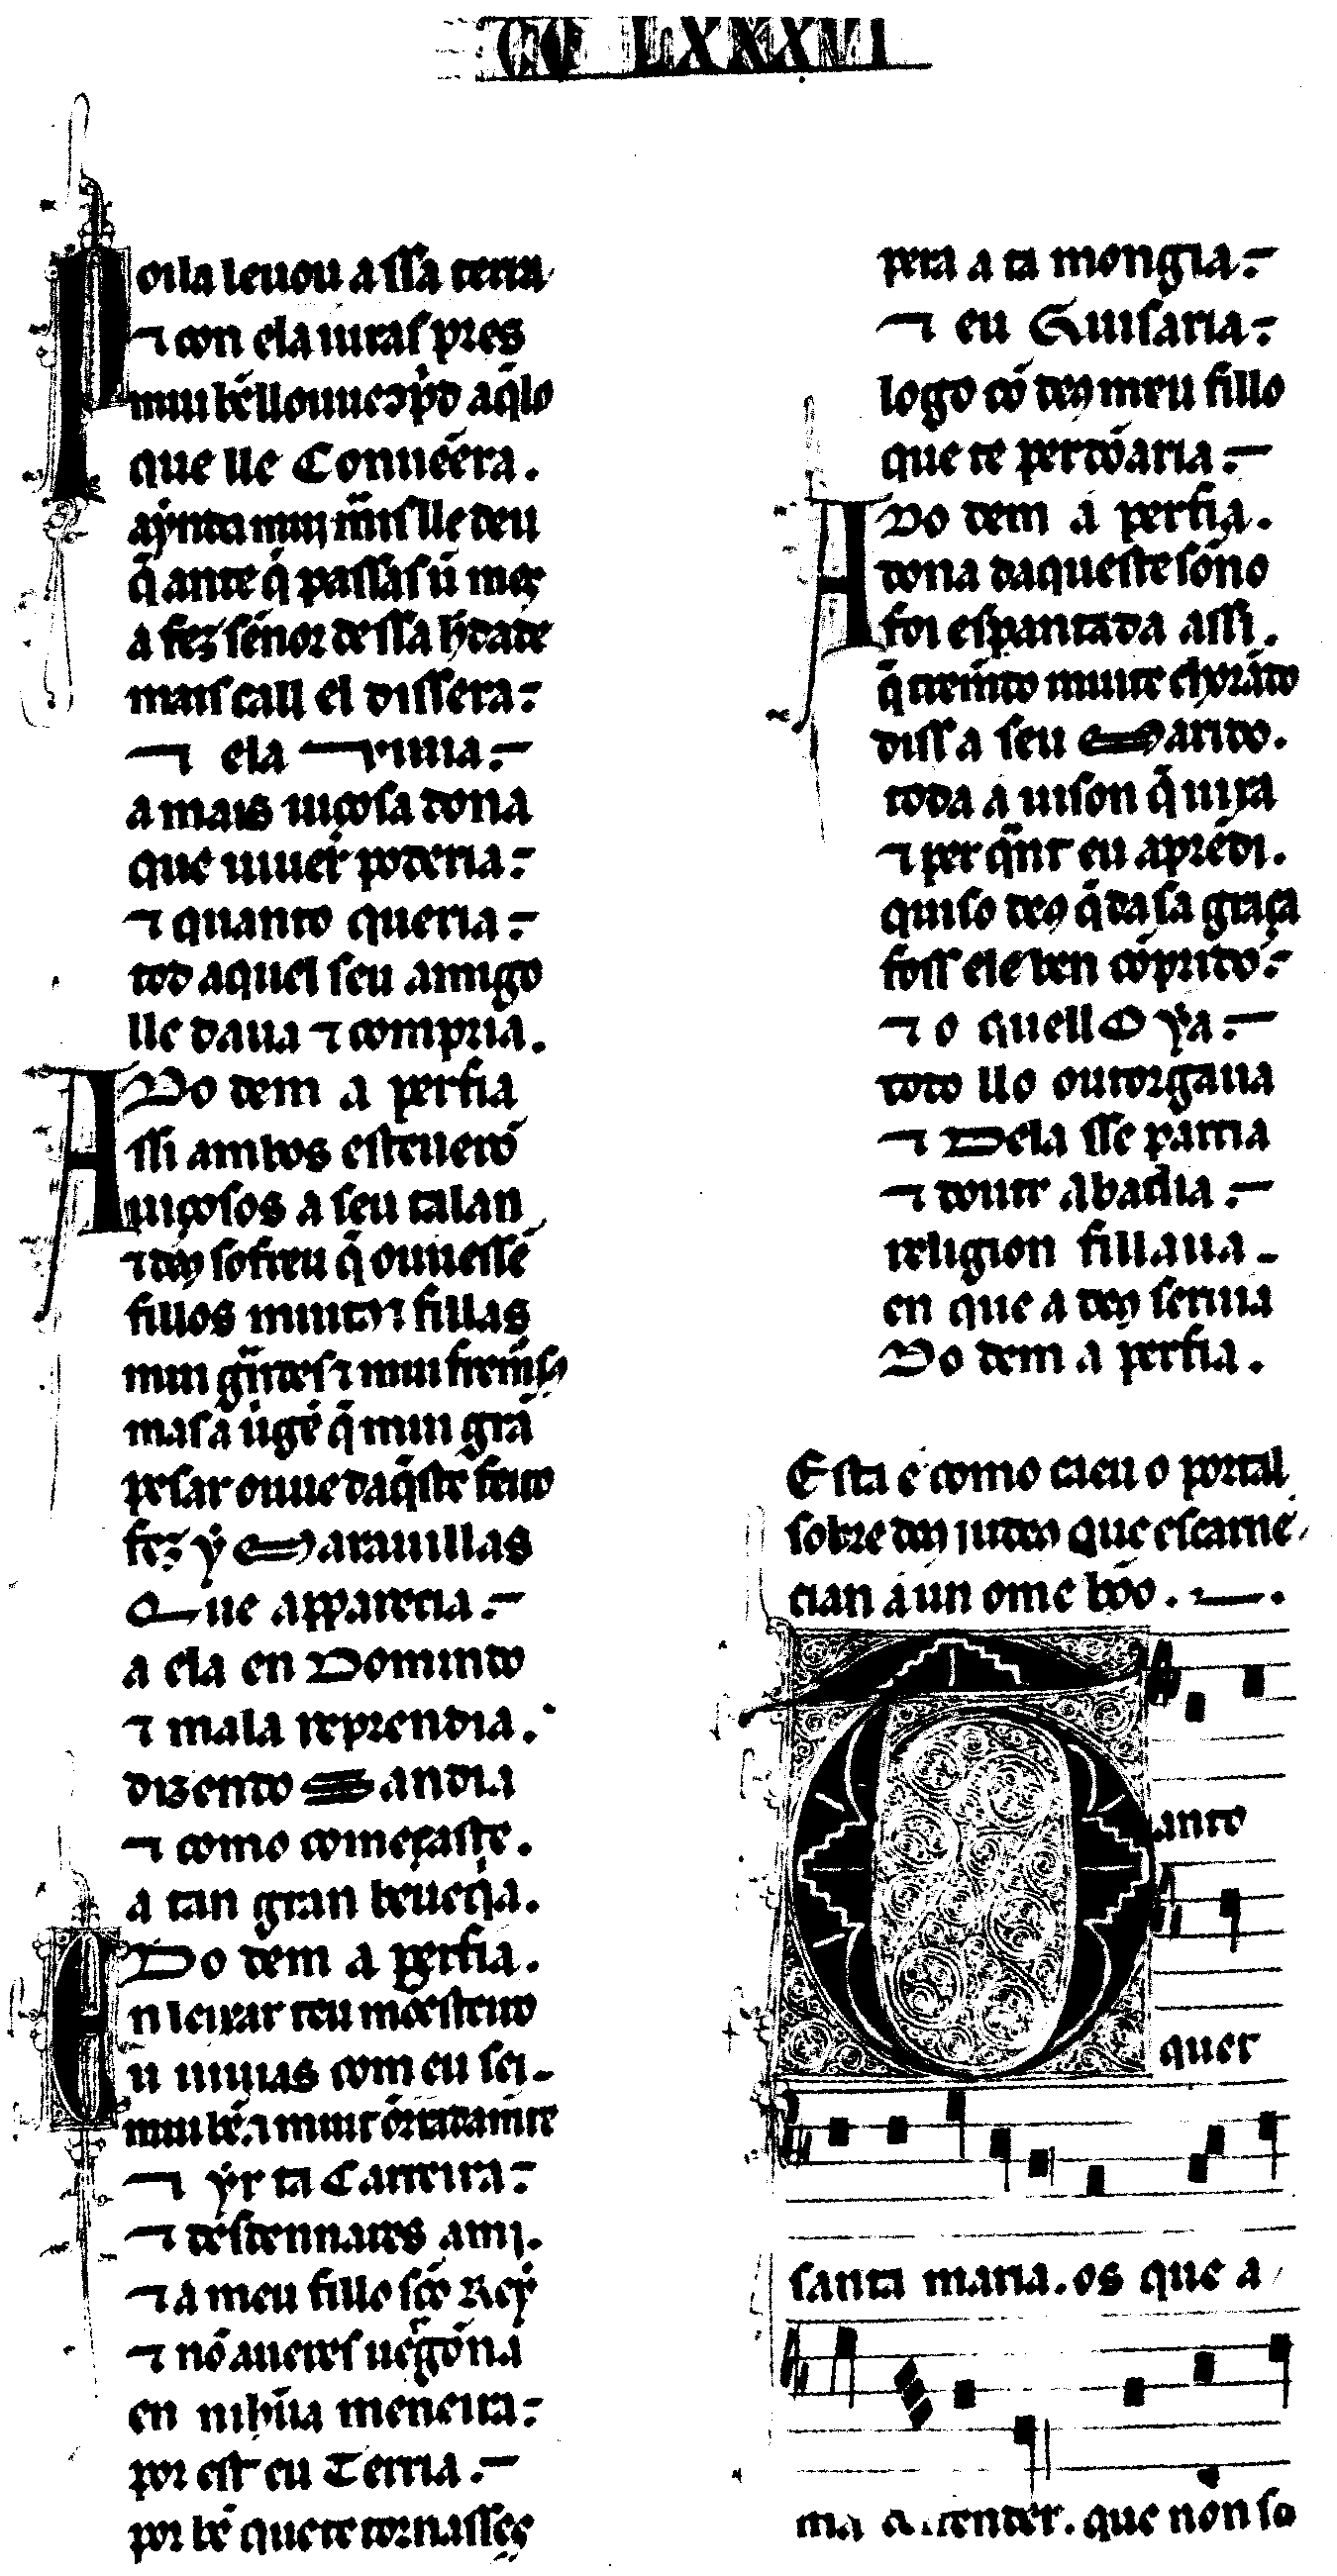 CC LXXXVI
Poila leuou a ssa terra
⁊ con ela iuras pres
mui bẽ llouue ꝯp̃do aq̃lo
que lle Conuẽera.
aynda mui mais lle deu
q̃ ante q̃ passas ũ mes
a fez sẽnor dessa h̓dade
mais call el dissera:
⁊ ela ⁊ uiuia:
a mais uiçosa dona
que uiuer poderia:
⁊ quanto queria:
tod aquel seu amigo
lle daua ⁊ compria.
Do dem a perfia
Assi ambos esteuerõ
uiçosos a seu talan
⁊ deꝯ sofreu q̃ ouuessẽ
fillos muitꝯ ⁊ fillas
mui grãdes ⁊ mui fremosꝯ
mas a uirgẽ q̃ mui grã
pesar ouue daq̃ste feito
fez y Marauillas
Que apparecia:
a ela en Dormindo
⁊ mala reprendia.
dizendo Sandia
⁊ como começaste.
a tan gran bauequia.
Do dem a perfia.
En leixar teu mõesteiro
u uiuias com eu sei
mui bẽ. ⁊ muit õrradamẽte
⁊ yr ta Carreira:
⁊ desdennares a mi.
⁊ a meu fillo sc̃o Rey
⁊ nõ aueres uergõna
en nihũa meneira:
por est eu Terria:
por bẽ que te tornasses
pera a ta mongia:
⁊ eu Guisaria:
logo cõ deꝯ meu fillo
que te perdõaria:
Do dem a perfia.
A dona daqueste sõno
foi espantada assi.
q̃ tremẽdo muit e chorãdo
diss a seu Marido.
toda a uison q̃ uira
⁊ per quãt eu aprẽdi.
quiso deꝯ q̃ da sa graça
foss ele ben cõprido:
⁊ o quell Oya:
todo llo outorgaua
⁊ Dela sse partia
⁊ dourr abadia:
religion fillaua
en que a deꝯ seruia
Do dem a perfia.
Esta é como caeu o portal
sobre dous iudeus que escarne
cian a un ome bõo.
Tanto
quer
santa maria. os que a
ma defender. que non so